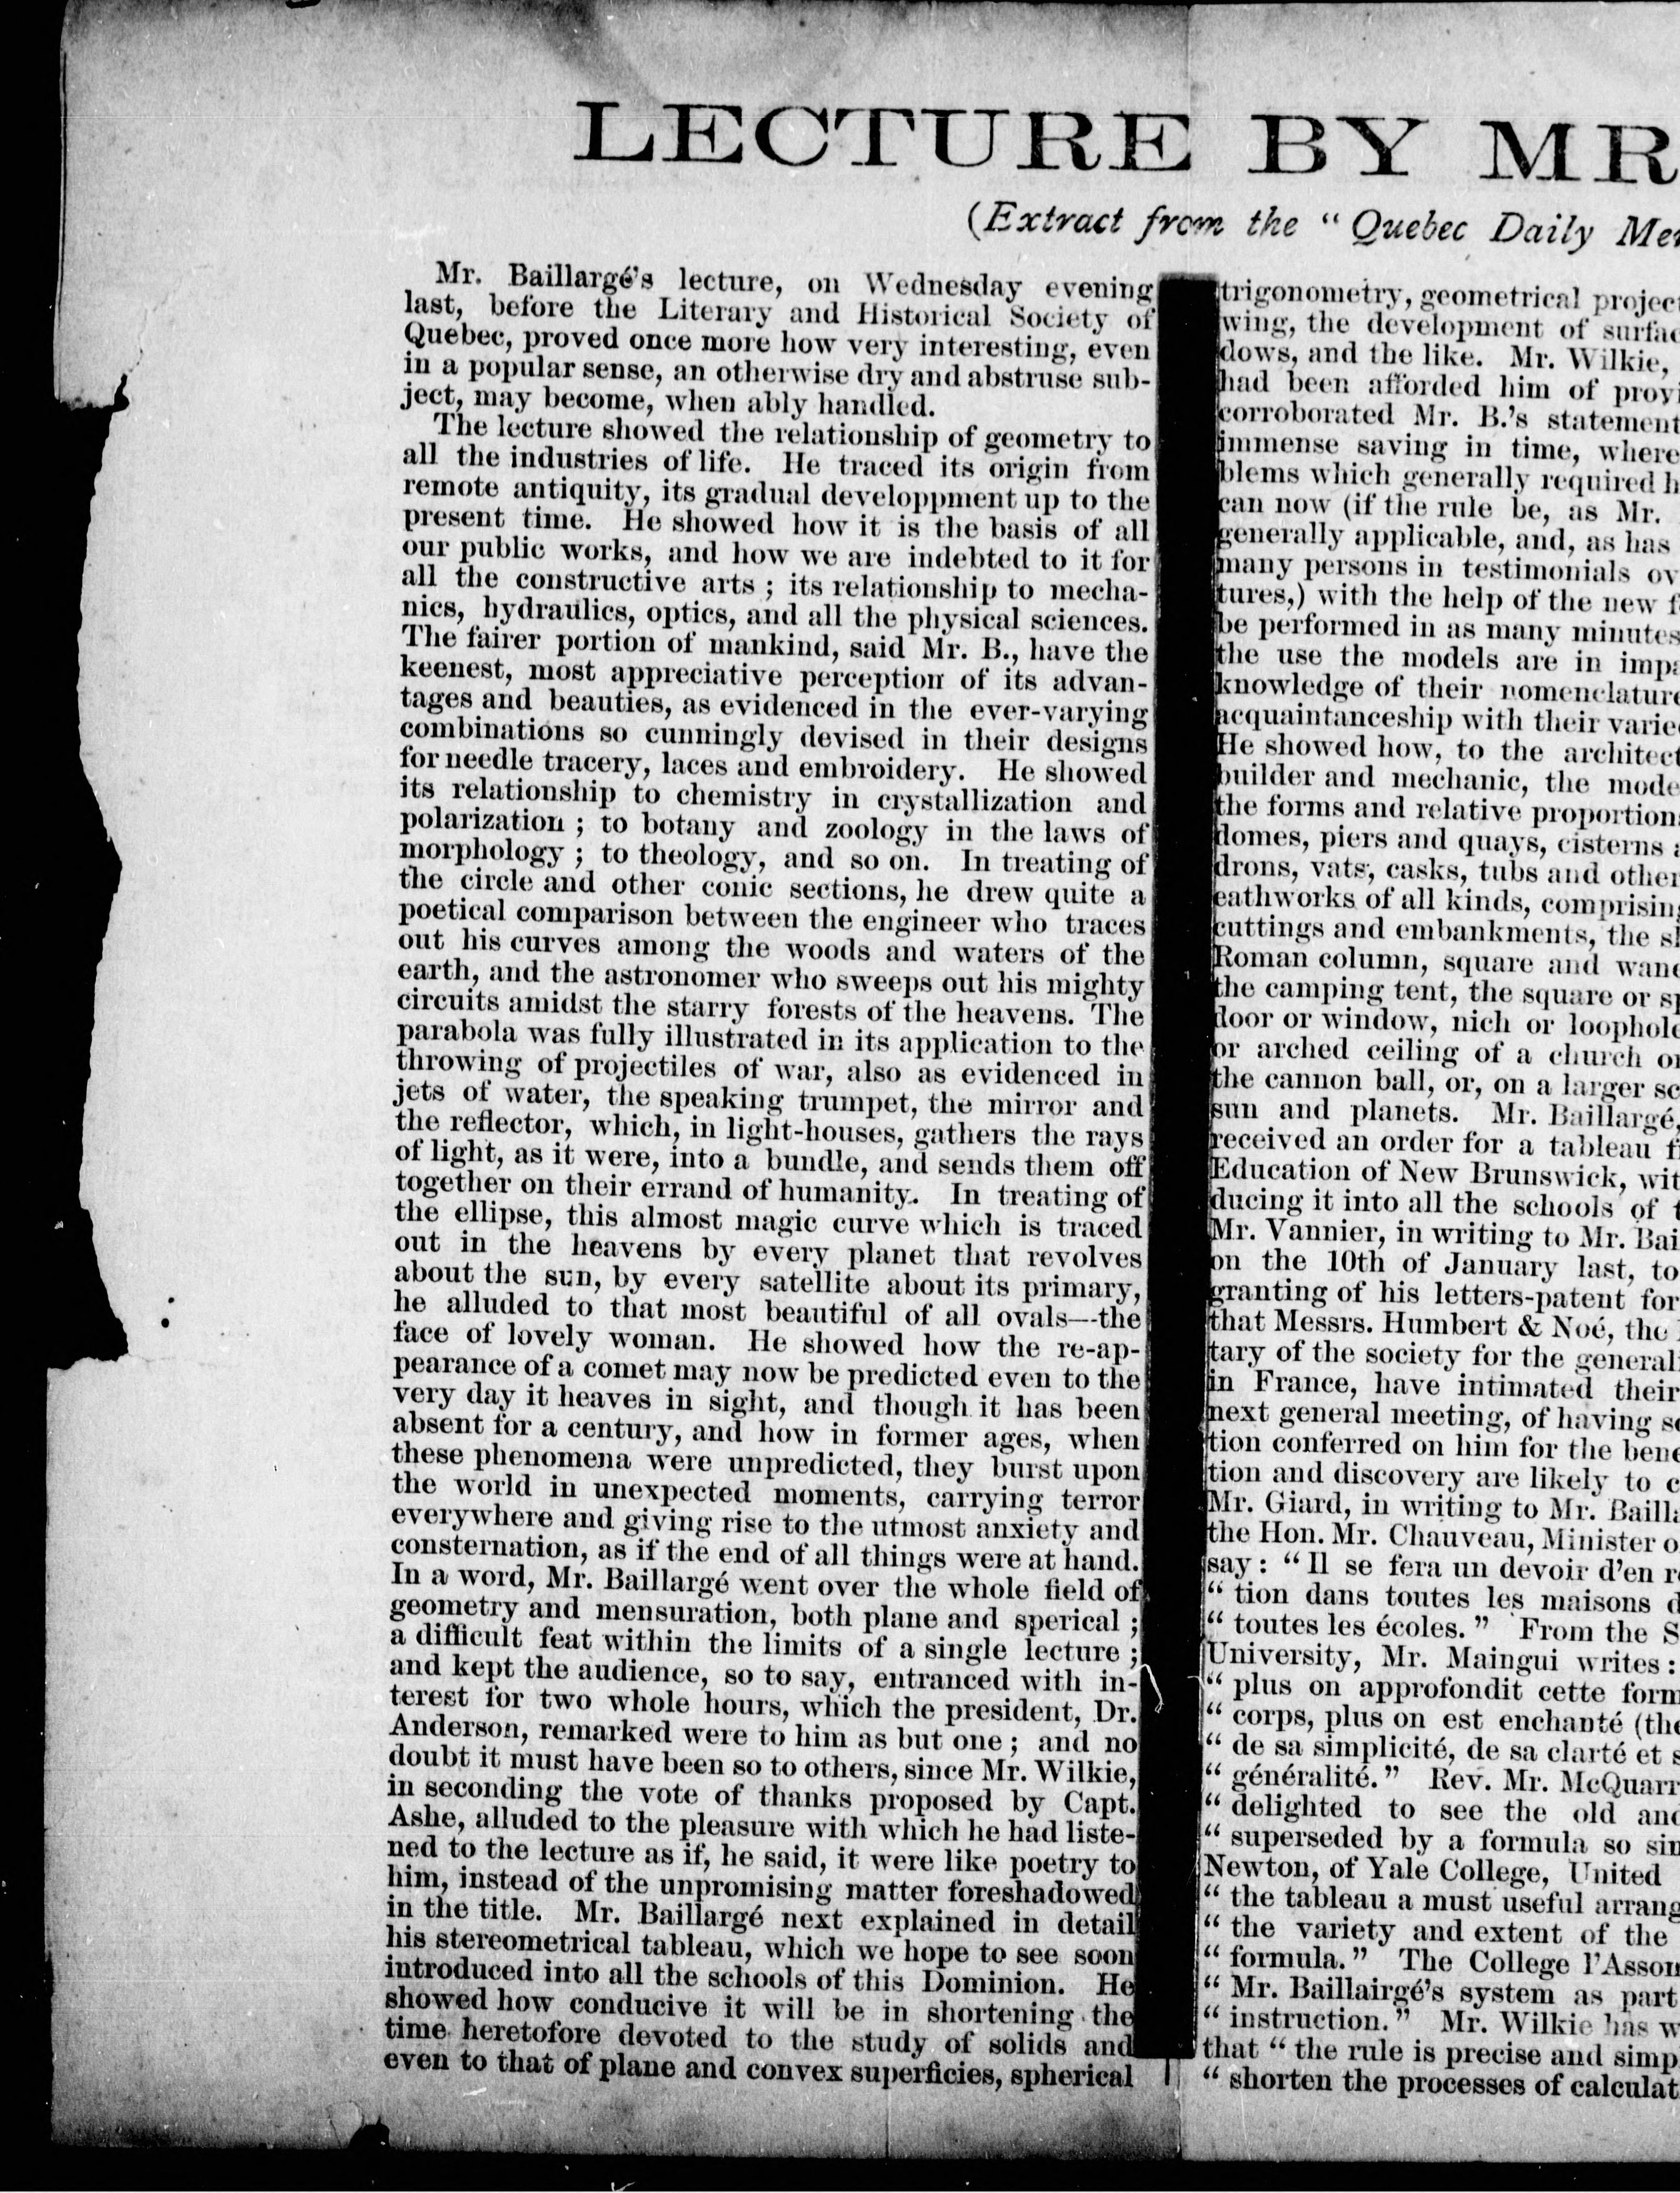 LECTURE BY MR
(Extract from the " Quebec Daily
Mr. Baillargé's lecture, on Wednesday evening
last, before the Literary and Historical Society of
Quebec, proved once more how very interesting, even
in a popular sense, an otherwise dry and abstruse sub-
ject, may become, when ably handled.
The lecture showed the relationship of geometry to
all the industries of life. He traced its origin from
remote antiquity, its gradual developpment up to the
present time. He showed how it is the basis of all
our public works, and how we are indebted to it for
all the constructive arts ; its relationship to mecha-
nics, hydraulics, optics, and all the physical sciences.
The fairer portion of mankind, said Mr. B., have the
keenest, most appreciative perception of its advan-
tages and beauties, as evidenced in the ever-varying
combinations so cunningly devised in their designs
for needle tracery, laces and embroidery. He showed
its relationship to chemistry in crystallization and
polarization ; to botany and zoology in the laws of
morphology ; to theology, and so on. In treating of
the circle and other conic sections, he drew quite a
poetical comparison between the engineer who traces
out his curves among the woods and waters of the
earth, and the astronomer who sweeps out his mighty
circuits amidst the starry forests of the heavens. The
parabola was fully illustrated in its application to the
throwing of projectiles of war, also as evidenced in
jets of water, the speaking trumpet, the mirror and
the reflector, which, in light-houses, gathers the rays
of light, as it were, into a bundle, and sends them off
together on their errand of humanity. In treating of
the ellipse, this almost magic curve which is traced
out in the heavens by every planet that revolves
about the sun, by every satellite about its primary,
he alluded to that most beautiful of all ovals—the
face of lovely woman. He showed how the re-ap-
pearance of a comet may now be predicted even to the
very day it heaves in sight, and though it has been
absent for a century, and how in former ages, when
these phenomena were unpredicted, they burst upon
the world in unexpected moments, carrying terror
everywhere and giving rise to the utmost anxiety and
consternation, as if the end of all things were at hand.
In a word, Mr. Baillargé went over the whole field of
geometry and mensuration, both plane and sperical ;
a difficult feat within the limits of a single lecture ;
and kept the audience, so to say, entranced with in-
terest for two whole hours, which the president, Dr.
Anderson, remarked were to him as but one ; and no
doubt it must have been so to others, since Mr. Wilkie,
in seconding the vote of thanks proposed by Capt.
Ashe, alluded to the pleasure with which he had liste-
ned to the lecture as if, he said, it were like poetry to
him, instead of the unpromising matter foreshadowed
in the title. Mr. Baillargé next explained in detail
his stereometrical tableau, which we hope to see soon
introduced into all the schools of this Dominion. He
showed how conducive it will be in shortening the
time heretofore devoted to the study of solids and
even to that of plane and convex superficies, spherical
trigonometry, geometrical
wing, the development of
dows, and the like. Mr. Wilkie,
had been afforded him of
corroborated Mr. B.'s statement
immense saving in time,
blems which generally required
can now (if the rule be, as Mr.
generally applicable, and, as has
many persons in testimonials
tures,) with the help of the new
be performed in as many minutes
the use the models are in
knowledge of their nomenclature
acquaintanceship with their
He showed how, to the architect
builder and mechanic, the
the forms and relative
domes, piers and quays, cisterns
drons, vats, casks, tubs and other
eathworks of all kinds,
cuttings and embankments, the
Roman column, square and
the camping tent, the square or
door or window, nich or loophole
or arched ceiling of a church
the cannon ball, or, on a larger
sun and planets. Mr. Baillargé,
received an order for a tableau
Education of New Brunswick,
ducing it into all the schools of
Mr. Vannier, in writing to Mr.
on the 10th of January last, to
granting of his letters-patent for
that Messrs. Humbert & Noé, the
tary of the society for the
in France, have intimated their
next general meeting, of having
tion conferred on him for the
tion and discovery are likely to
Mr. Giard, in writing to Mr.
the Hon. Mr. Chauveau, Minister
say : " Il se fera un devoir d'en
" tion dans toutes les maisons
" toutes les écoles. " From the
University, Mr. Maingui writes :
" plus on approfondit cette
" corps, plus on est enchanté
" de sa simplicité, de sa clarté et
" généralité. " Rev. Mr.
" delighted to see the old
" superseded by a formula so
Newton, of Yale College, United
" the tableau a must useful
" the variety and extent of the
" formula. " The College
" Mr. Baillairgé's system as part
" instruction. " Mr. Wilkie has
that " the rule is precise and
" shorten the processes of